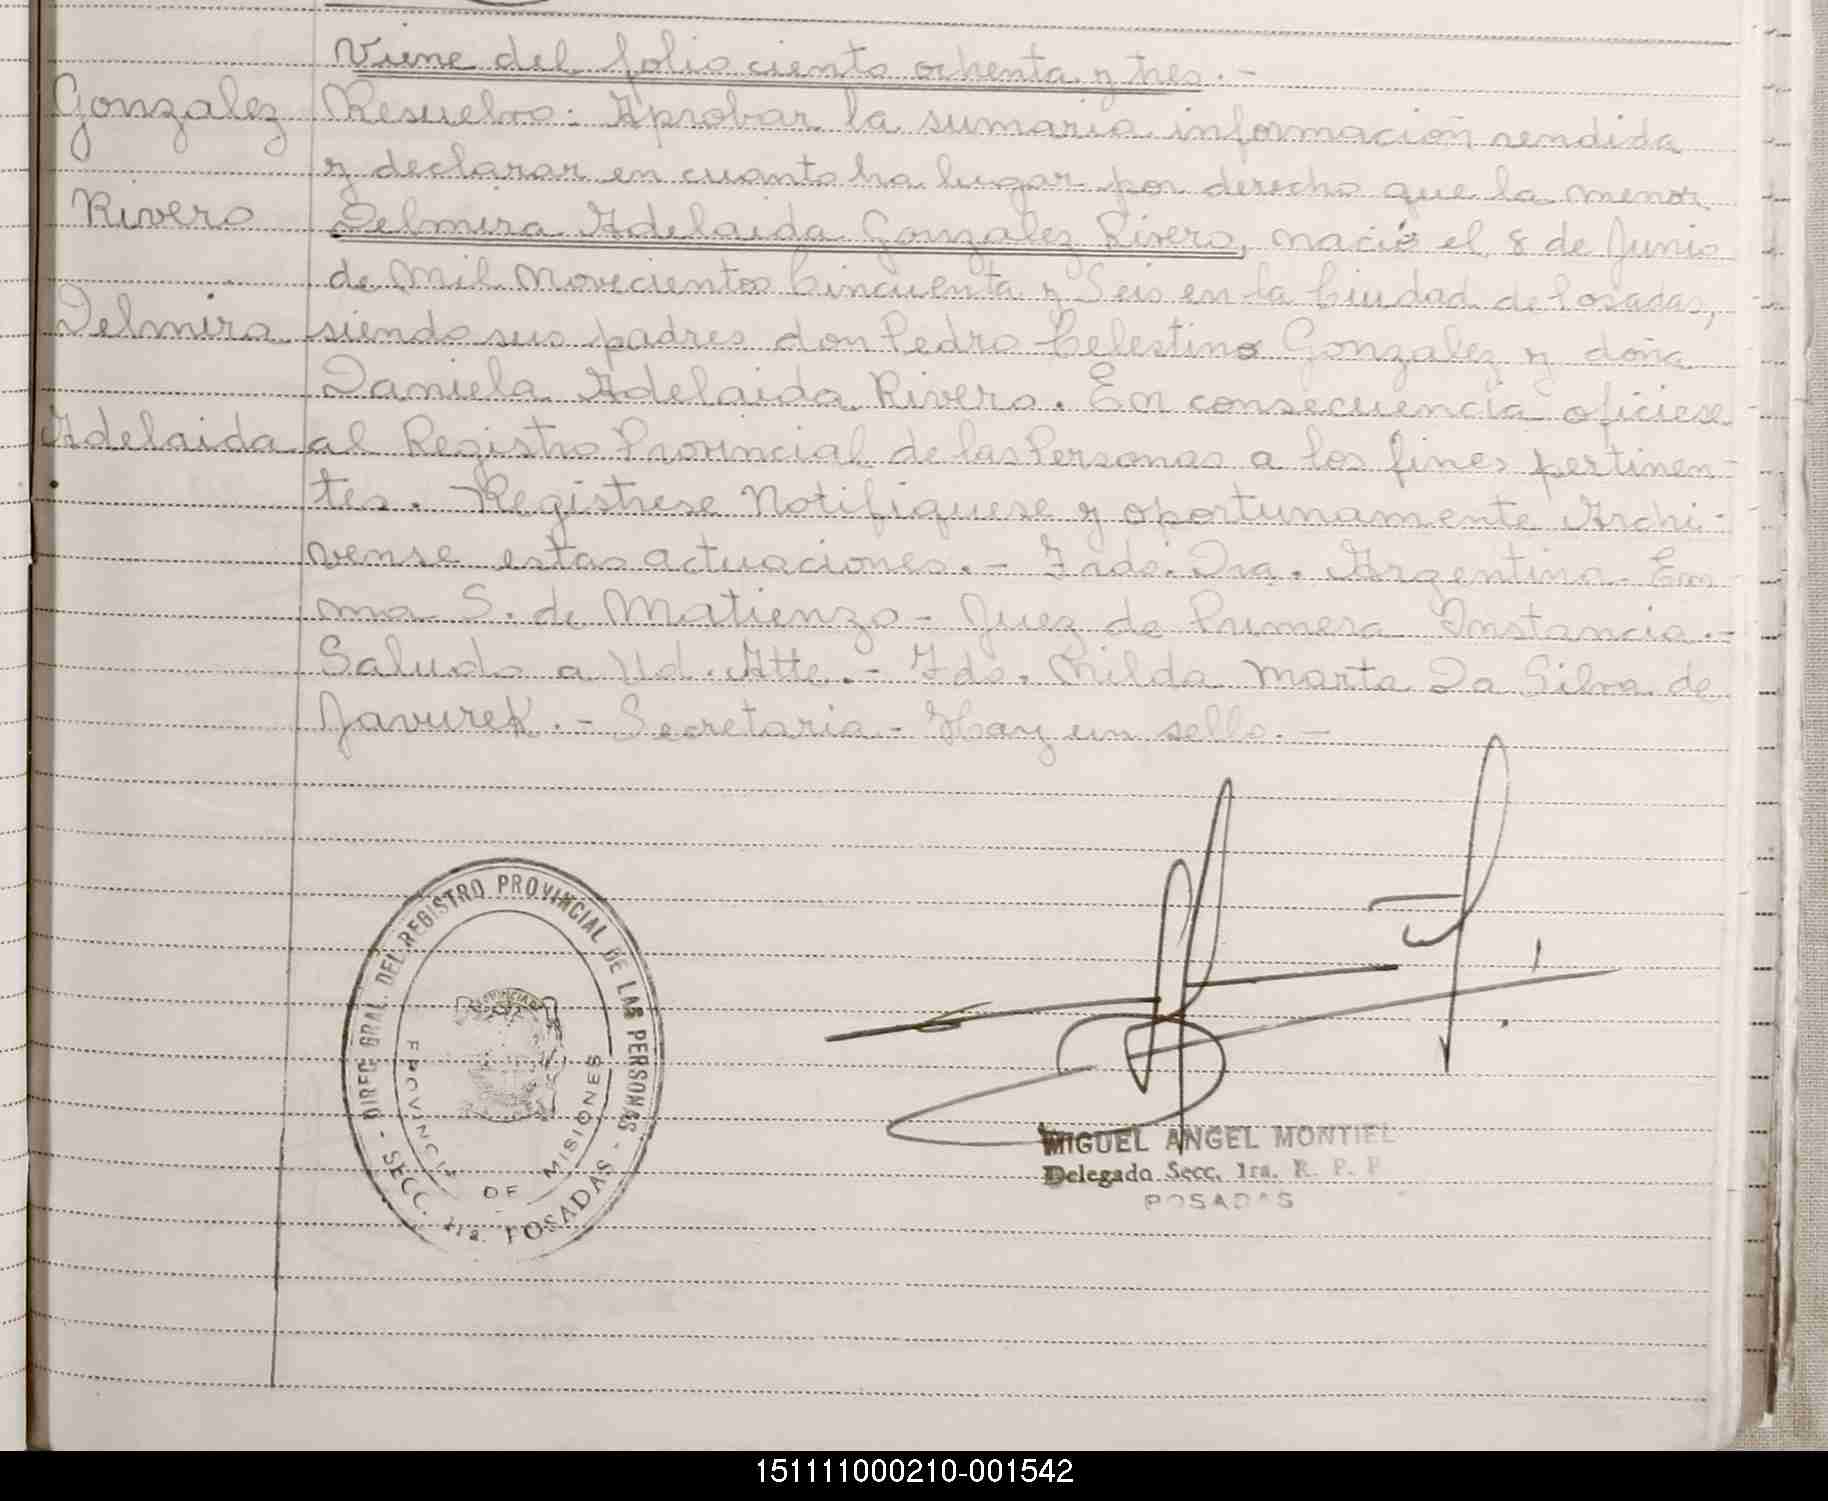 Viene del folio ciento ochenta y tres.-
Gonzalez Resuelvo: Aprobar la sumaria información rendida
y declarar en cuanto ha lugar por derecho que la menor
Rivero Delmira Adelaida Gonzalez Rivero, nació el 8 de Junio
de Mil Novecientos Cincuenta y Seis en la Ciudad de Posadas,
Delmira siendo sus padres don Pedro Celestino Gonzalez y doña
Daniela Adelaida Rivero. En consecuencia oficiese
Adelaida al Registro Provincial de las Personas a los fines pertinen-
tes. Registrese Notifiquese y oportunamente Archi-
vense estas actuaciones.- Fdo. Dra. Argentina Em
ma S. de Matienzo - Juez de Primera Instancia.-
Saludo a Ud. Atte.- Fdo. Nilda Marta Da Silva de
Javurek.- Secretaria - Hay un sello.-
- DIREC. GRAL. DEL REGISTRO PROVINCIAL DE LAS PERSONAS -
PROVINCIA DE MISIONES
SECC. 1ra. POSADAS
MIGUEL ANGEL MONTIEL
Delegado Secc. 1ra. R. P. P.
POSADAS
151111000210-001542